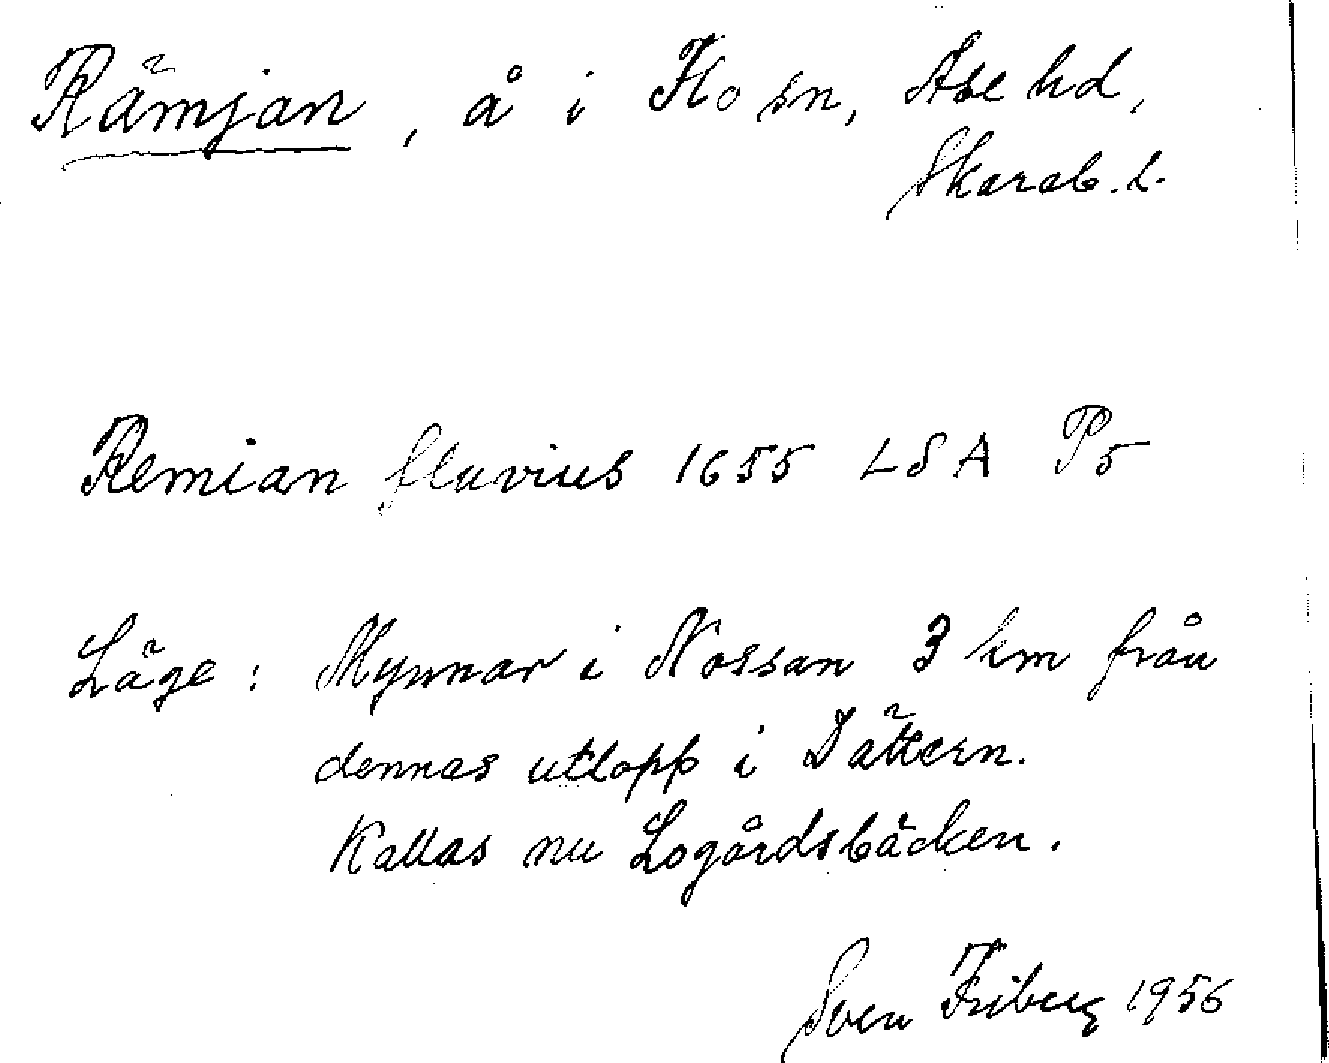 Rämjan, å i Flo sn, Åse hd,
Skarab. l.
Remian fluvius 1655 LSA P5
Läge: Mynnar i Nossan 3 km från
dennas utlopp i Dättern.
Kallas nu Logårdsbäcken.
Sven Friberg 1956